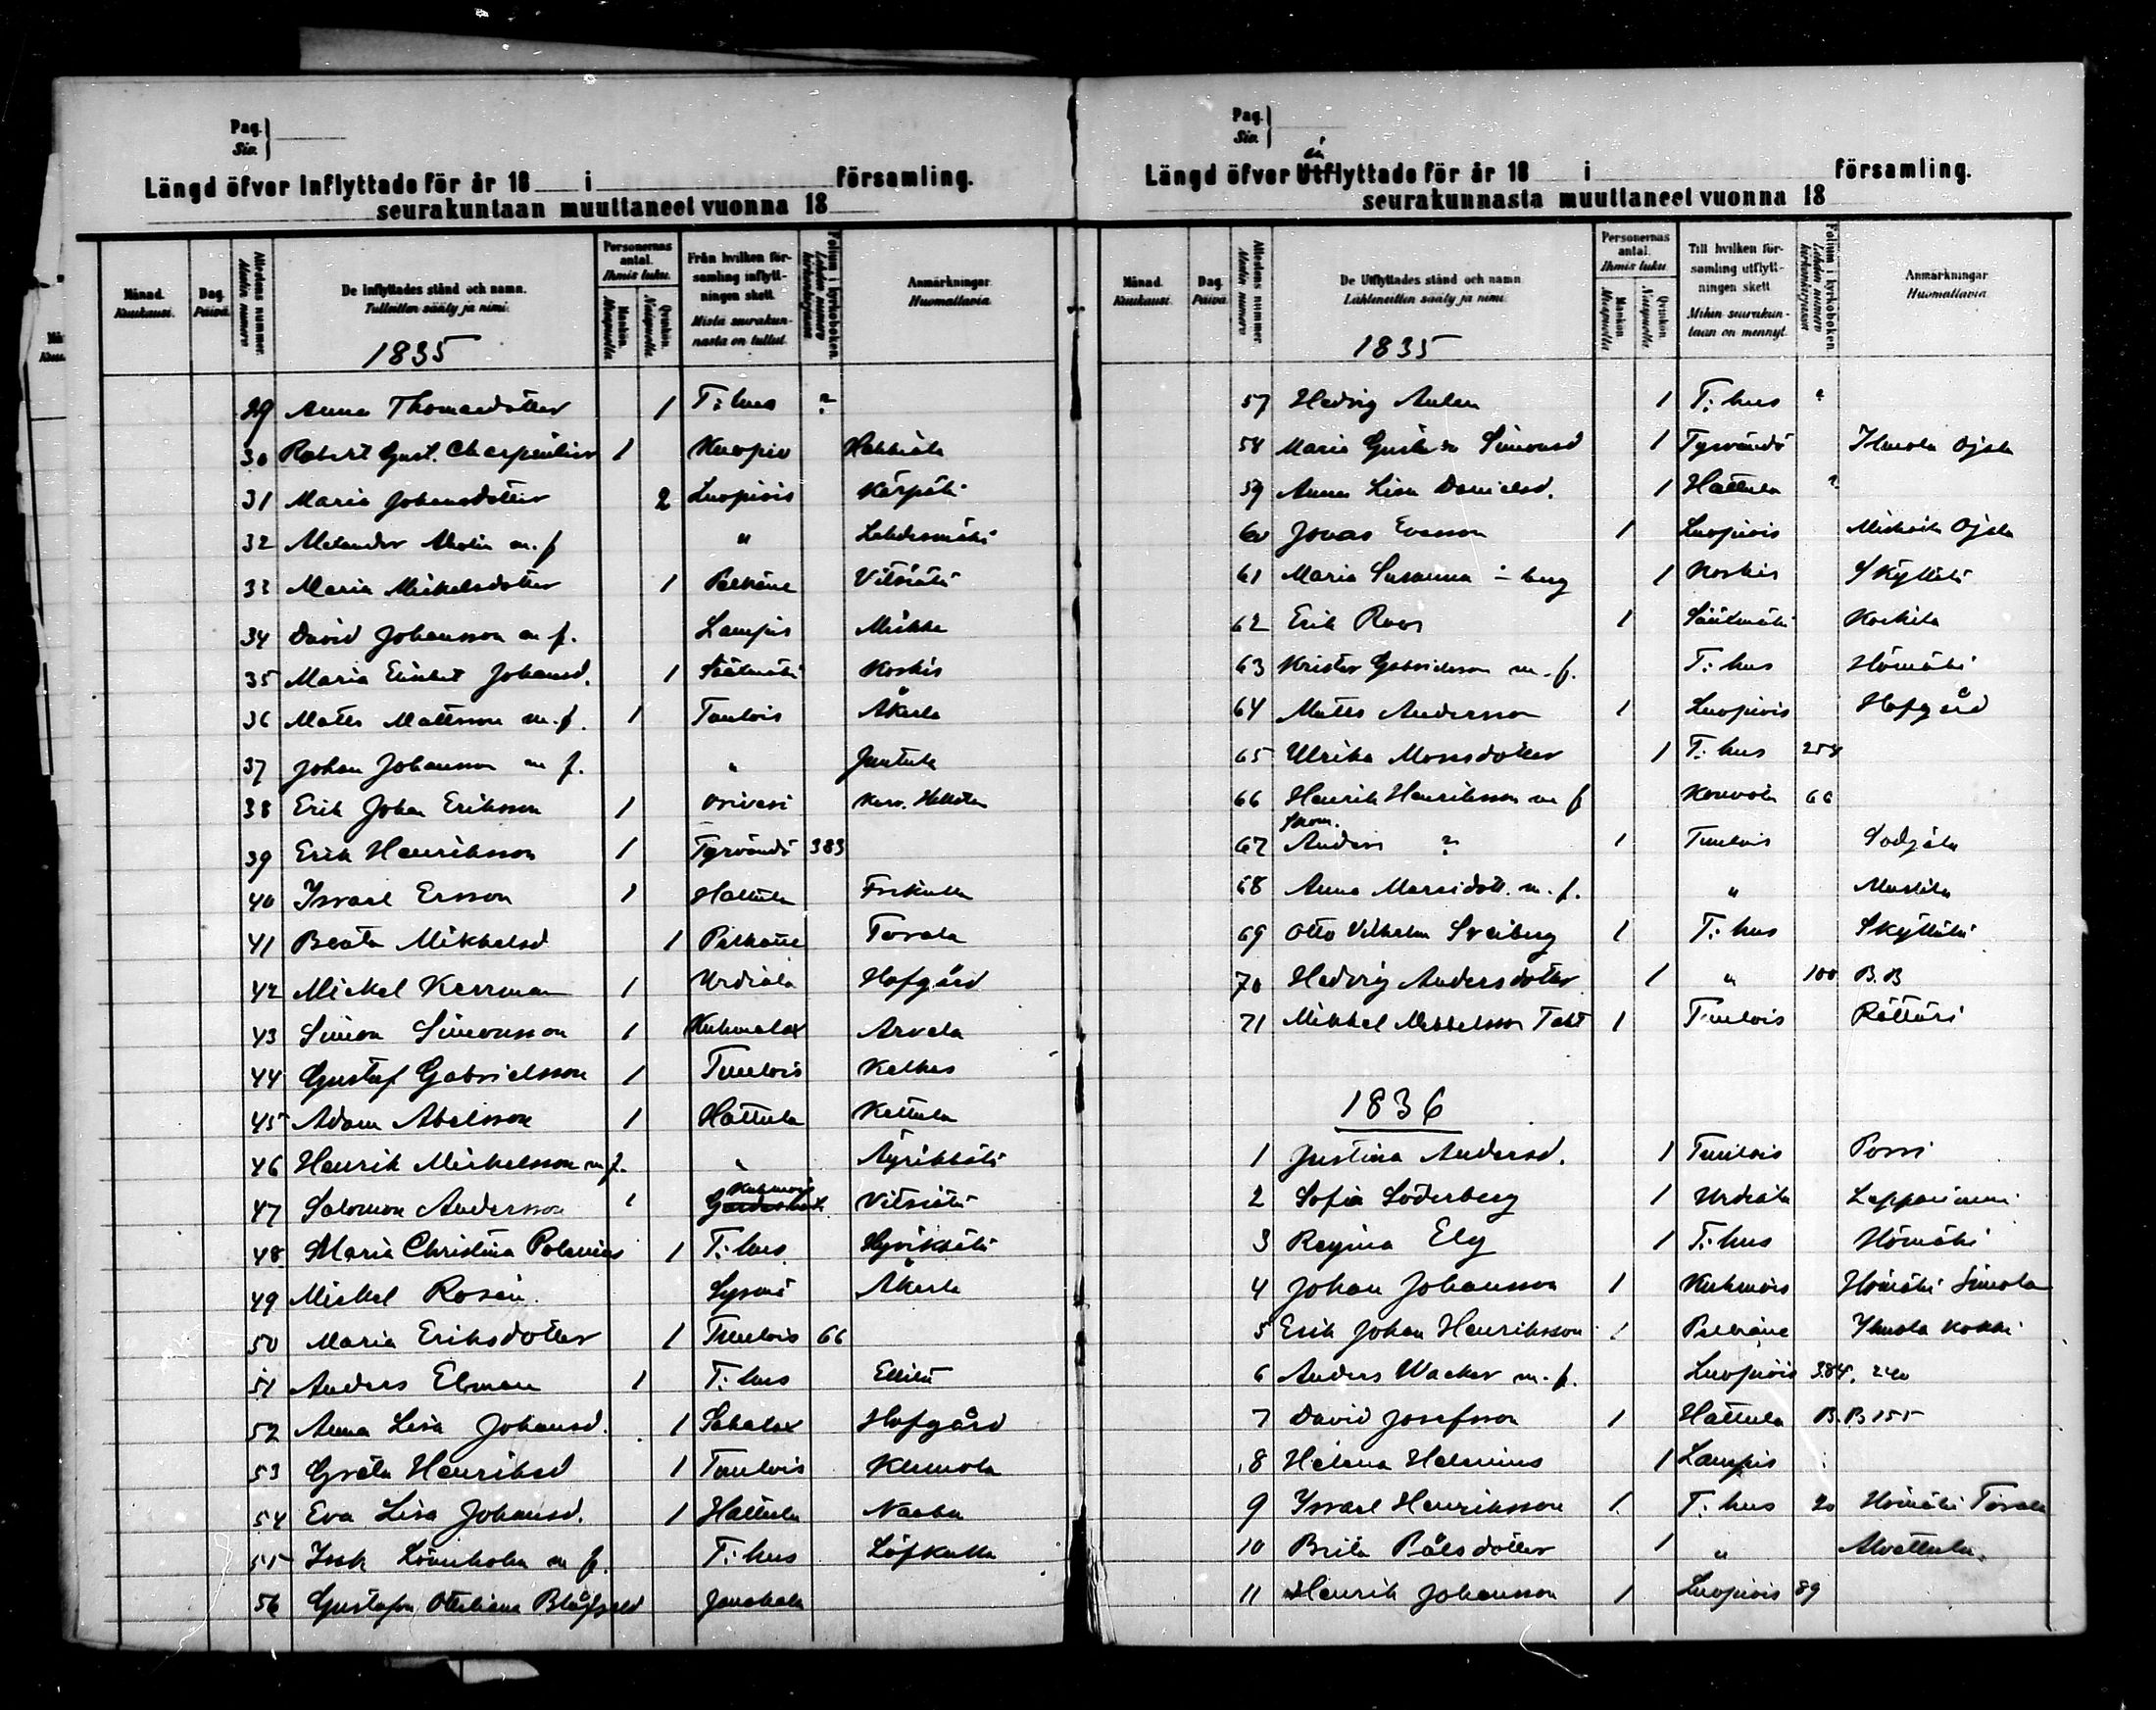 Pag.
Siv.
Längd öfver Inflyttade för år 18 i församling.
seurakuntaan muuttaneet vuonna 18
Månad. Kuukausi.
Dag. Päivä.
Attestens nummer. Alestin numero
De Inflyttades stånd och namn.
Tulleitten sääty ja nimi.
Personernas antal. Ihmis luku.
Mankön. Miespuolia
Qvinkön. Naispuolia
Från hvilken församling inflyttningen skett.
Mistä seurakunnasta on tullut.
Folium i kyrkoboken.
Anmärkningar
Huomattavia
1835
29 Anna Thomasdotter 1 T:hus ?
30 Robert Gust. Charpentier 1 Kuopio
31 Maria Johansdotter 2 Luopiois Kärpäti
32 m. f " Lehdesmäki
33 Maria Mickelsdotter 1 Pelkäne Vitsiälä
34 David Johansson m f. Lampis Miekka
35 Maria Johansd. 1 Säätmäki Koskis
36 Matts Mattsson m. f. 1 Tuulois Åkerla
37 Johan Johansson m f. " Juntula
38 Erik Johan Eriksson 1 Orivesi
39 Erik Henriksson 1 Tyrvändö 383
40 Israel Ersson 1 Hattula Frikulla
41 Beata Mikkelsd 1 Pelkäne Torala
42 Mickel Kerrman 1 Urdiala Hofgård
43 Simon Simonsson 1 Kuhmalax Arvela
44 Gustaf Gabrielsson 1 Tuulois Kelkes
45 Adam Abelsson 1 Hattula Kettula
46 Henrik Mickelsson m f. " Äyriklälä
47 Salomon Andersson 1 Kuhmois Vitsiälä
48 Maria Christina Polenius 1 T:hus
49 Mickel Rosén Sysmä Åkerla
50 Maria Eriksdotter 1 Tuulois 66
51 Anders Ekman 1 T:hus Ellilä
52 Anna Lisa Johansd. 1 Sahalax Hofgård
53 Greta Henriksd 1 Tuulois Klemola
54 Eva Lisa Johansd. 1 Hattula
55 Isak Lönnholm m f. T:hus Löfkulla
56 Gustafva Otteliana Blåfjeld Janakala
Pag.
Siv.
Längd öfver Utflyttade för år 18 i församling.
in
seurakunnasta muuttaneet vuonna 18
Månad. Kuukausi.
Dag. Päivä.
Attestens nummer. Alestin numero
De Utflyttades stånd och namn.
Lähteneitten sääty ja nimi.
Personernas antal. Ihmis luku.
Mankön. Miespuolia
Qvinkön. Naispuolia
Till hvilken församling utflyttningen skett
Mihin seurakuntaan on mennyt.
Folium i kyrkoboken.
Anmärkningar
Huomattavia
1835
57 Hedvig 1 T:hus ?
58 Maria Simonsd 1 Tyrvändö Ilmola Ojala
59 Anna Lisa Danielsd. 1 Hattula ?
60 Jonas Evasson 1 Luopiois Ojala
61 Maria Susanna – berg 1 Koskis Skyttälä
62 Erik Roos 1 Säätmäki Koskila
63 Krister Gabrielsson m. f. T:hus Hömäki
64 Matts Andersson 1 Luopiois Hofgård
65 Ulrika Mosesdotter 1 T:hus 254
66 Henrik Henriksson m f Kouvola 66
Skom.
67 Anders ? 1 Tuulois Sodjala
68 Anna Marsidott. m. f. " Mustila
69 Otto Vilhelm Sveiberg 1 T:hus Skyttälä
70 Hedvig Andersdotter 1 " 100 B.B
71 Mikkel Mikkelsson Takt 1 Tuulois Rättäri
1836
1 Justina Andersd. 1 Tuulois Porri
2 Sofia Söderberg 1 Urdiala Leppäniemi
3 Regina Ely 1 T:hus Hömäki
4 Johan Johansson 1 Kuhmois Hömäki Simola
5 Erik Johan Henriksson 1 Pelkäne Ilmola Kokki
6 Anders Wacker m. f. Luopiois 384. 240
7 David Josefsson 1 Hattula B.B 155
8 Helena Helenius 1 Lampis
9 Israel Henriksson 1 T:hus 20 Hömäki Torala
10 Brita Pålsdotter 1 " Alvettula
11 Henrik Johansson 1 Luopiois 89